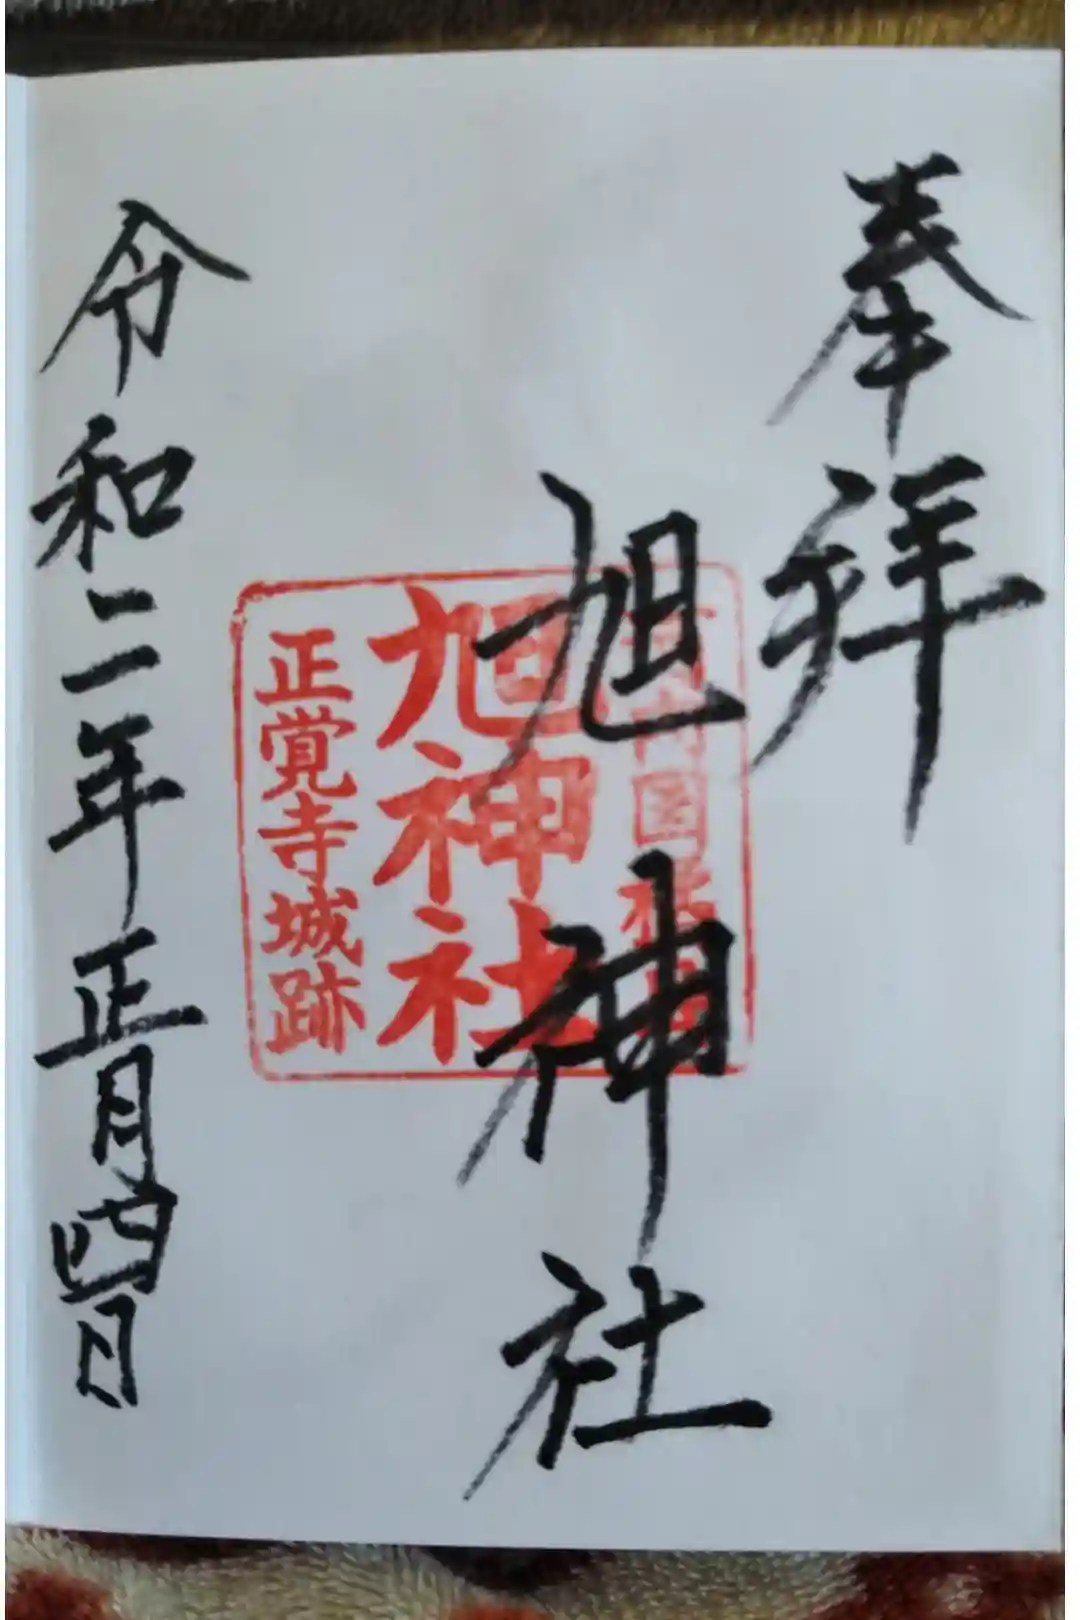 奉拝
旭神社
旭神社
正覚寺城跡
令和二年正月四日